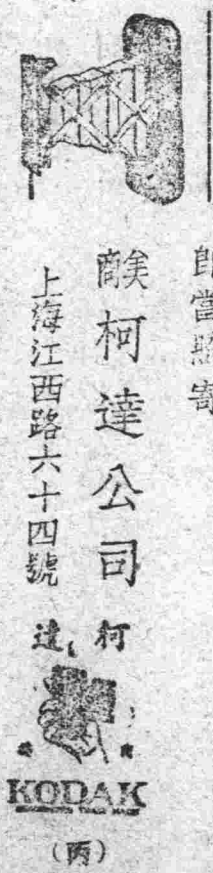 即當照寄
美商柯達公司
上海江西路六十四號
柯達
KODAK
(丙)